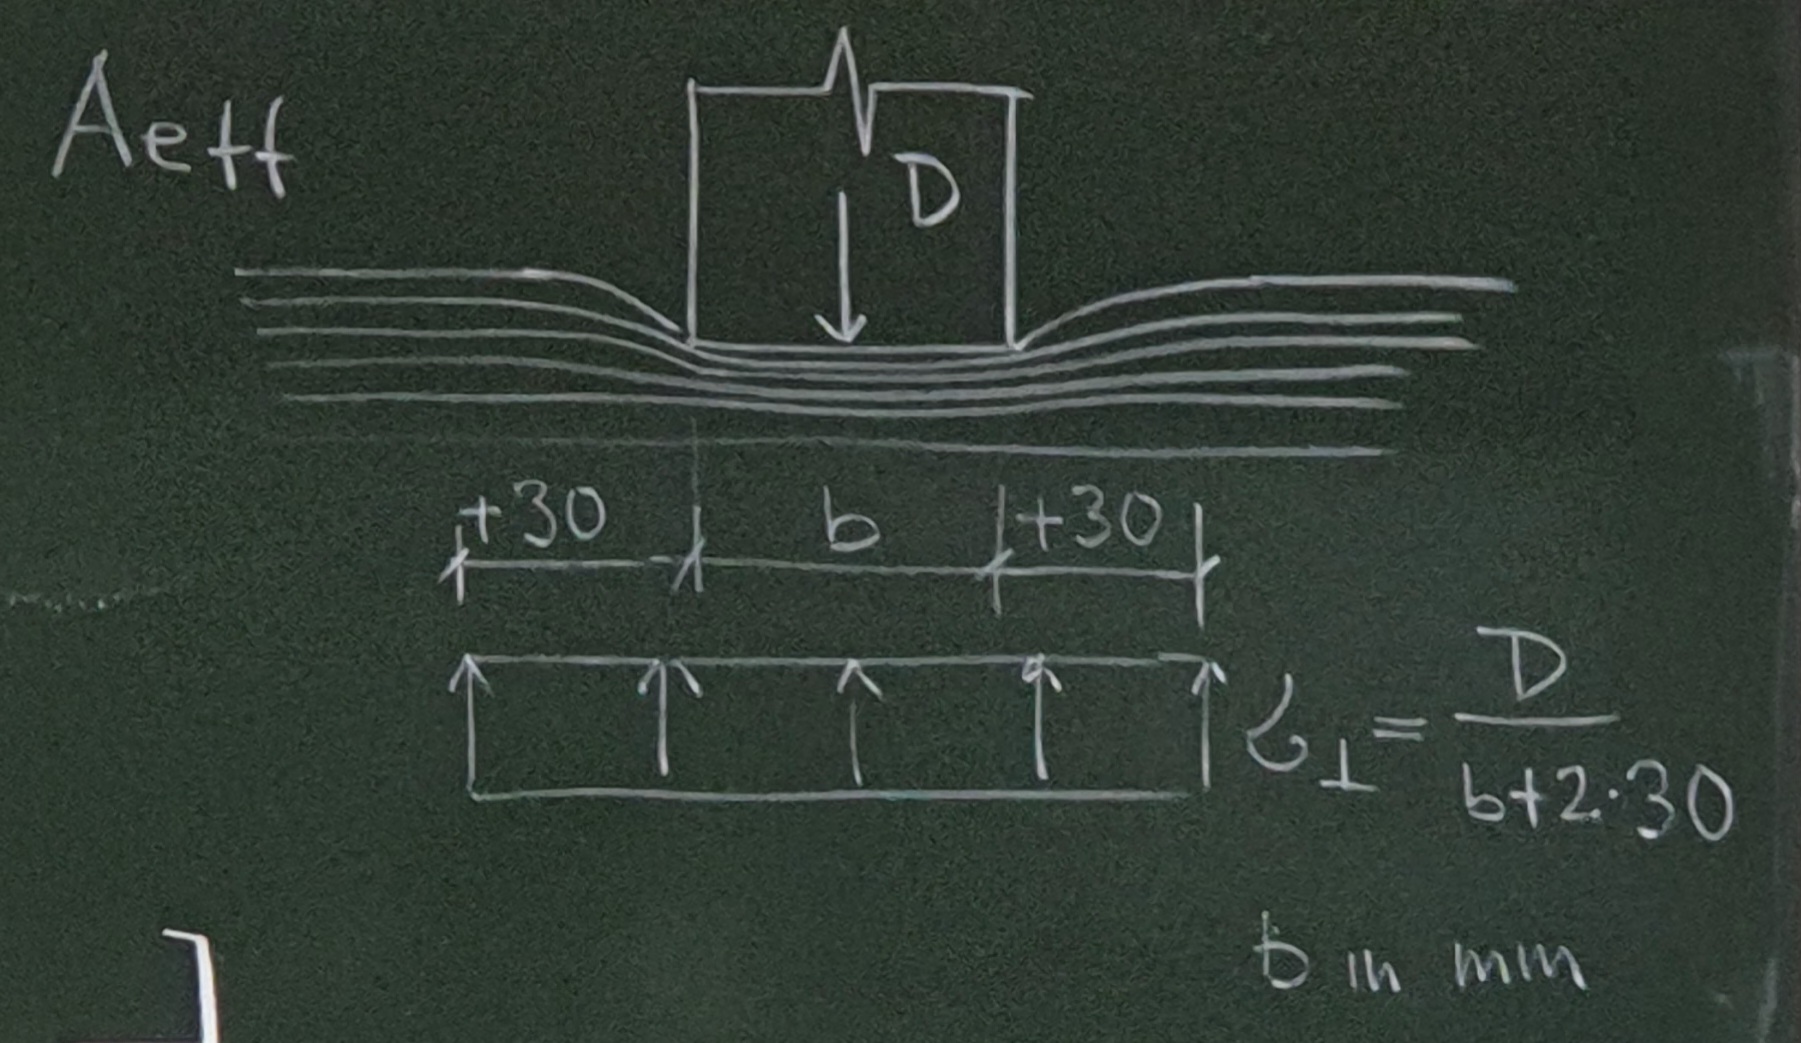 Aeff
D
+30 b +30
σ⊥ = D / b+2·30
b in mm